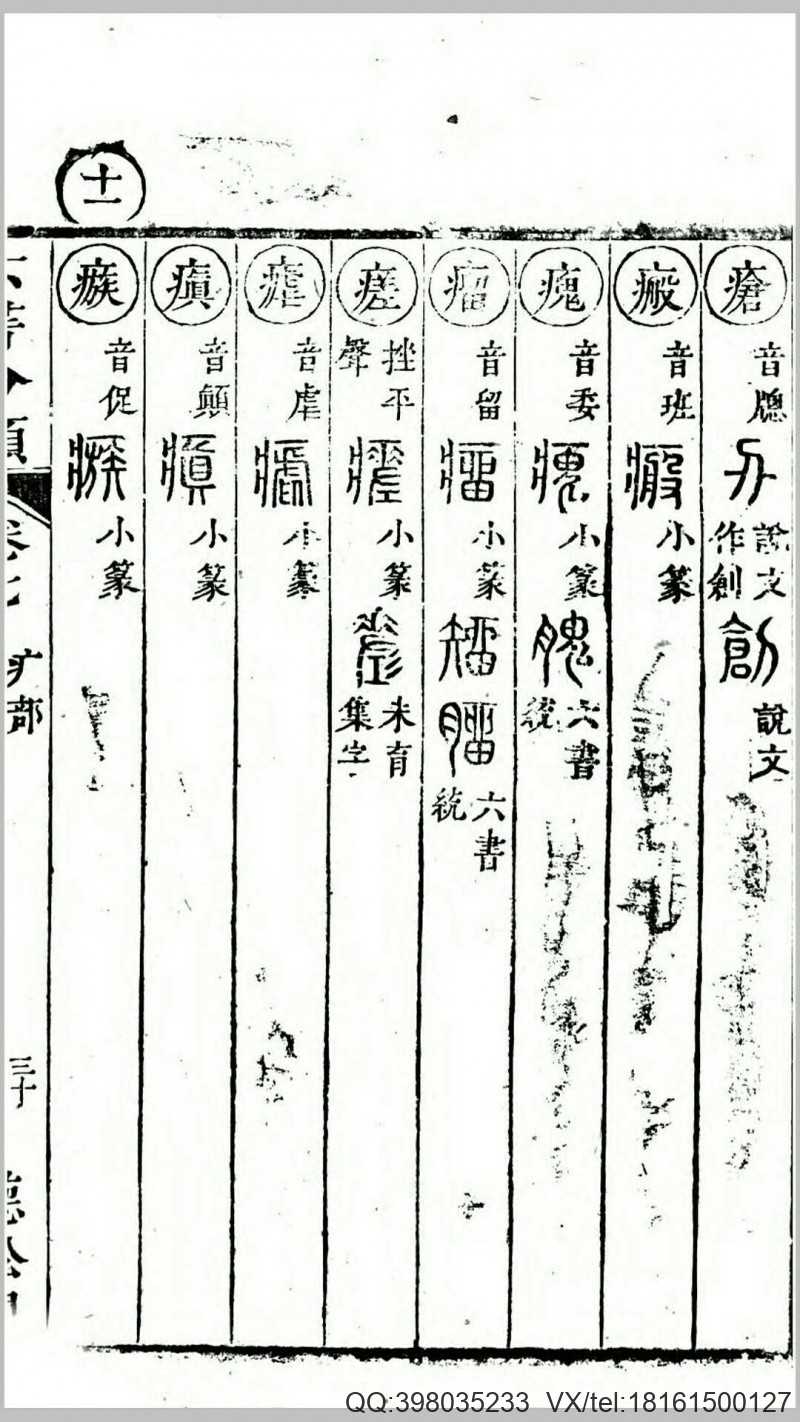 瘡 音牕 刅 說文作創 創 說文
瘢 音班 瘢 小篆
瘣 音委 瘣 小篆 六書統
瘤 音留 瘤 小篆 六書統
瘥 挫平聲 瘥 小篆 朱育集字
瘧 音虐 瘧 小篆
瘨 音顛 瘨 小篆
瘯 音促 瘯 小篆
十一
六書分類 卷七 疒部 三十
QQ:398035233 VX/tel:18161500127